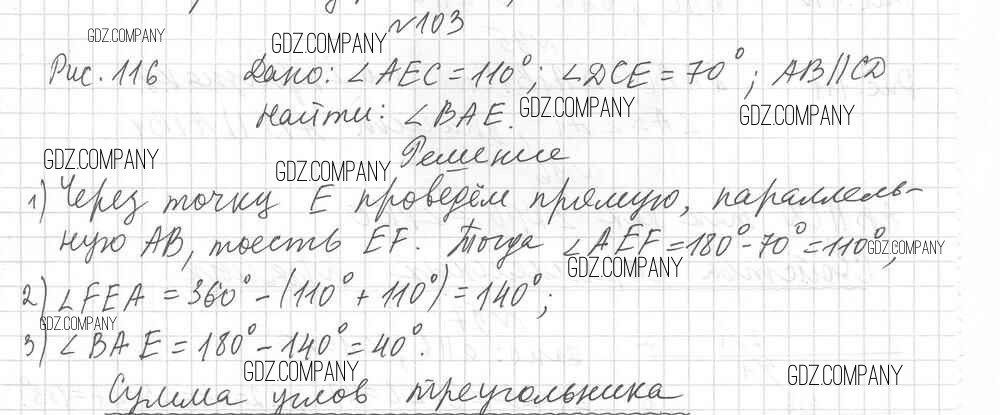 №103
GDZ.COMPANY
GDZ.COMPANY
Рис. 116 Дано: ∠AEC = 110°; ∠DCE = 70°; AB//CD
Найти: ∠BAE.
GDZ.COMPANY
GDZ.COMPANY
Решение
GDZ.COMPANY
GDZ.COMPANY
1) Через точку E проведём прямую, параллель-
ную AB, тоесть EF. Тогда ∠AEF = 180° - 70° = 110°;
GDZ.COMPANY
GDZ.COMPANY
2) ∠FEA = 360° - (110° + 110°) = 140°;
GDZ.COMPANY
3) ∠BAE = 180° - 140° = 40°.
GDZ.COMPANY
GDZ.COMPANY
Сумма углов треугольника